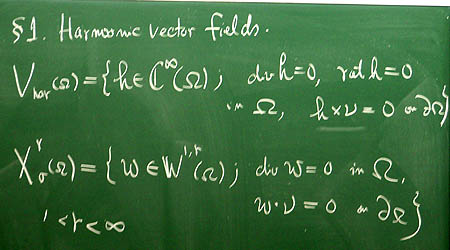 §1. Harmonic vector fields.
V_har(Ω) = {h ∈ C^∞(Ω̄); div h = 0, rot h = 0
in Ω, h × ν = 0 on ∂Ω}
X_σ^r(Ω) = {w ∈ W^{1,r}(Ω); div w = 0 in Ω,
w · ν = 0 on ∂Ω}
1 < r < ∞